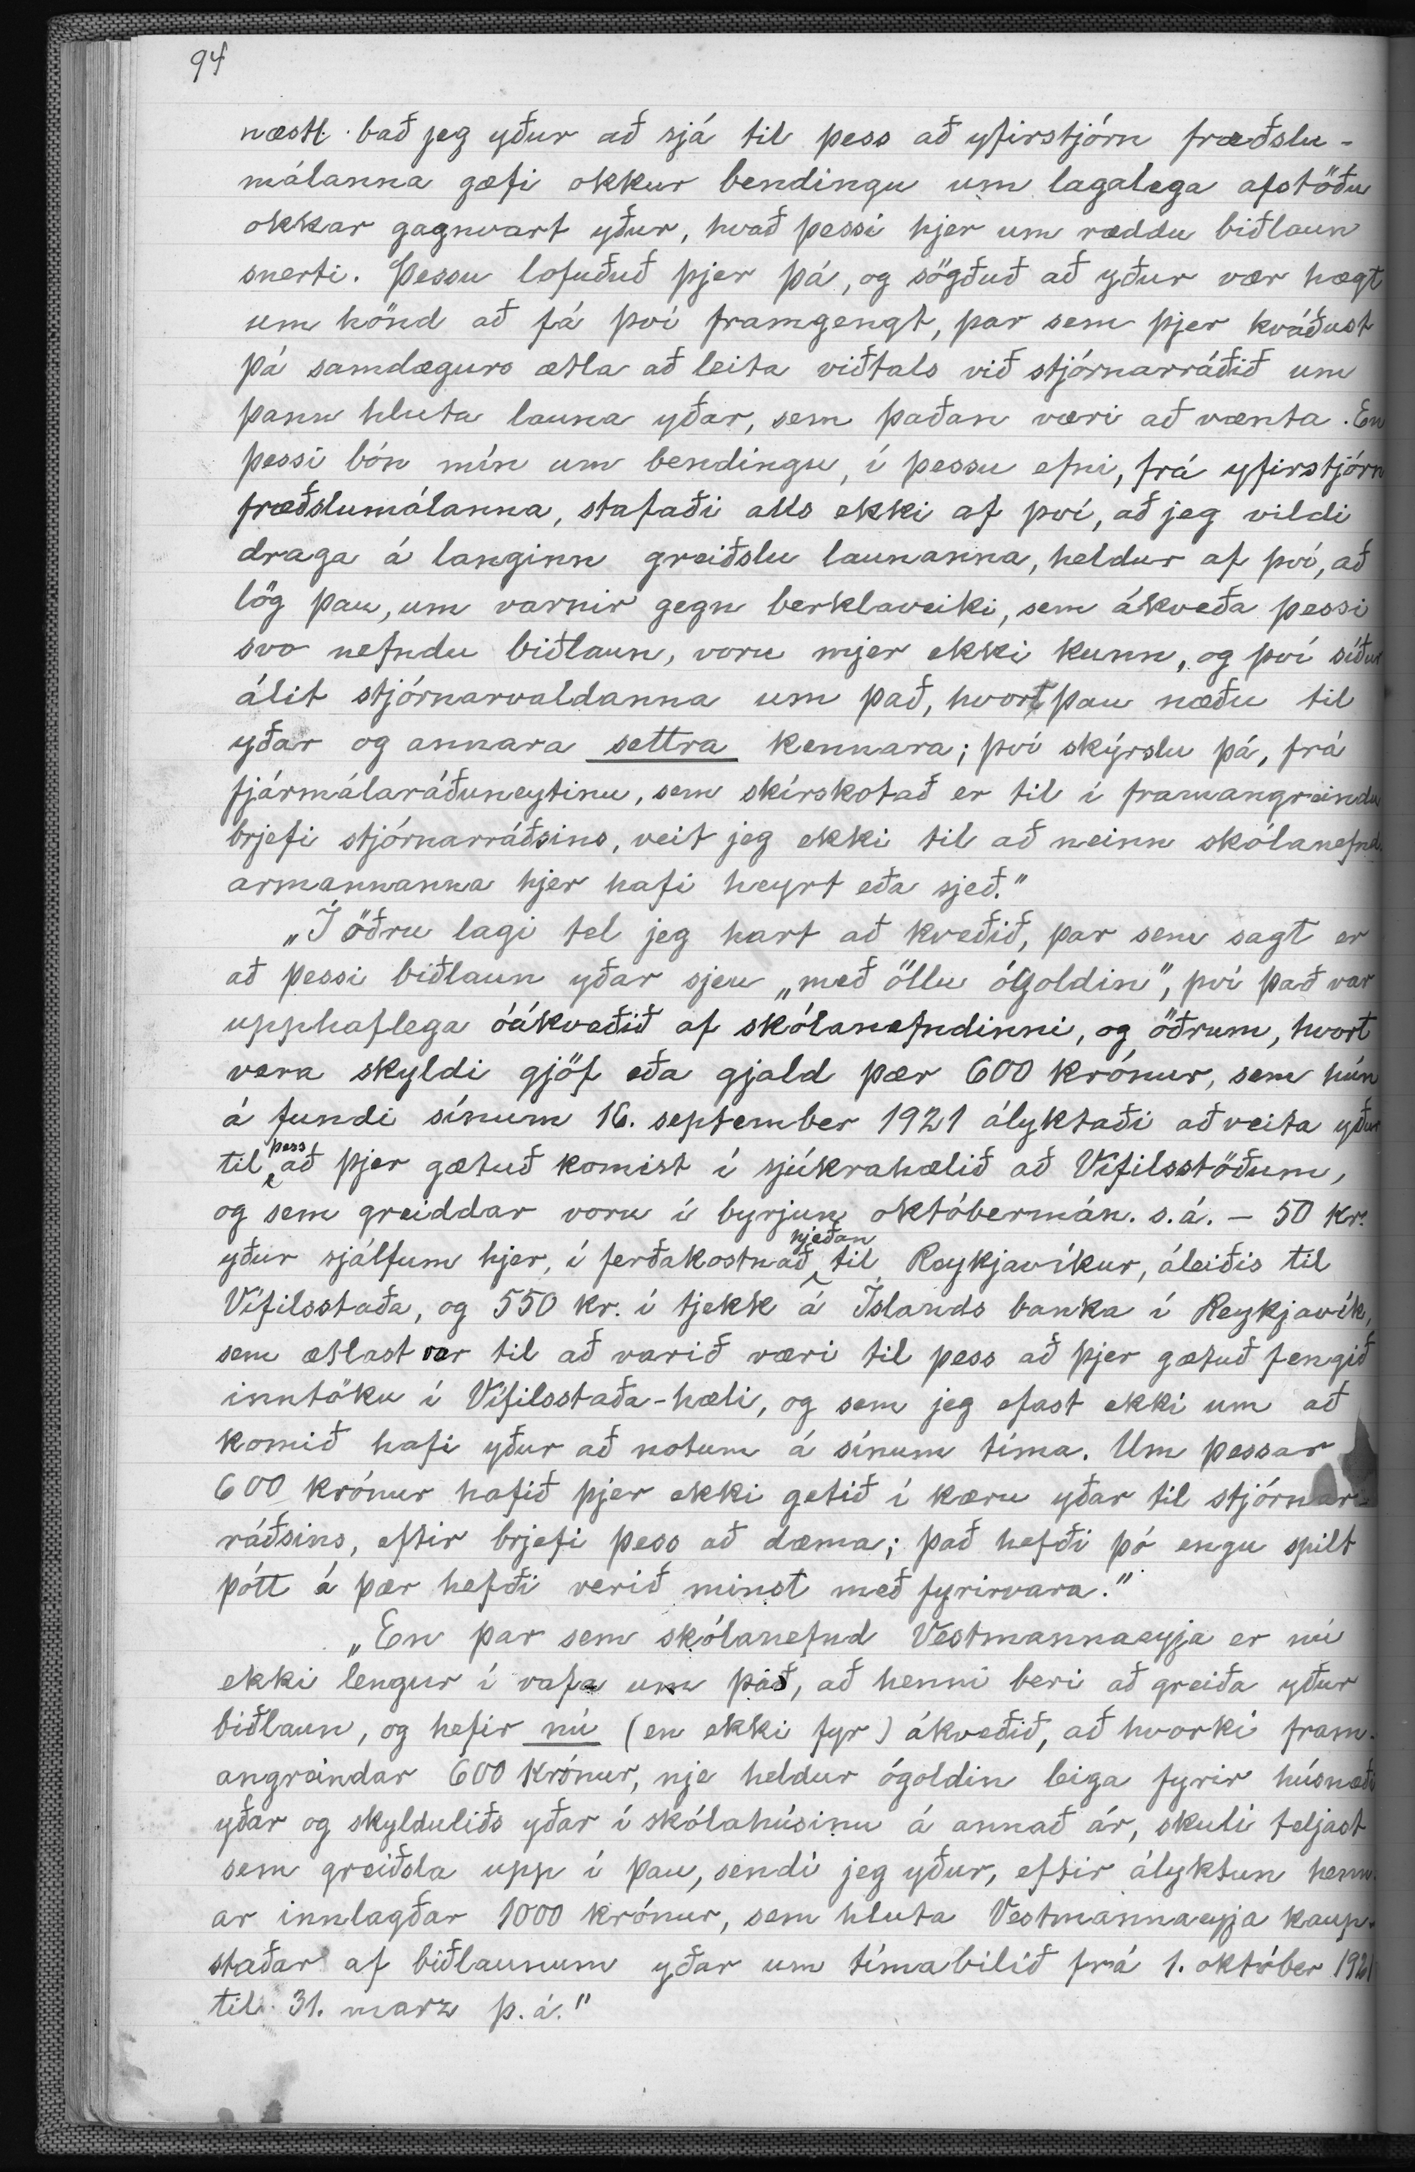 94
næstl. bað jeg yður að sjá til þess að yfirstjórn fræðslu-
málanna gæfi okkur bendingu um lagalega afstöðu
okkar gagnvart yður, hvað þessi hjer um ræddu biðlaun
snerti. Þessu lofuðuð þjer þá, og sögðuð að yður vær hægt
um hönd að fá því framgengt, þar sem þjer kváðust
þá samdægurs ætla að leita viðtals við stjórnarráðið um
þann hluta launa yðar, sem þaðan væri að vænta. En
þessi bón mín um bendingu, í þessu efni, frá yfirstjórn
fræðslumálanna, stafaði alls ekki af því, að jeg vildi
draga á langinn greiðslu launanna, heldur af því, að
lög þau, um varnir gegn berklaveiki, sem ákveða þessi
svo nefndu biðlaun, voru mjer ekki kunn, og því síður
álit stjórnarvaldanna um það, hvort þau næðu til
yðar og annara settra kennara; því skýrslu þá, frá
fjármálaráðuneytinu, sem skírskotað er til í framangreindu
brjefi stjórnarráðsins, veit jeg ekki til að neinn skólanefnd-
armannanna hjer hafi heyrt eða sjeð."
„Í öðru lagi tel jeg hart að kveðið, þar sem sagt er
að þessi biðlaun yðar sjeu „með öllu ógoldin", því það var
upphaflega óákveðið af skólanefndinni, og öðrum, hvort
vera skyldi gjöf eða gjald þær 600 krónur, sem hún
á fundi sínum 16. september 1921 ályktaði að veita yður
til þess að þjer gætuð komist í sjúkrahælið að Vífilsstöðum,
og sem greiddar voru í byrjun októbermán. s.á. – 50 kr.
yður sjálfum hjer, í ferðakostnað hjeðan til Reykjavíkur, áleiðis til
Vífilsstaða, og 550 kr. í tjekk á Íslands banka í Reykjavík,
sem ætlast var til að varið væri til þess að þjer gætuð fengið
inntöku í Vífilsstaða-hæli, og sem jeg efast ekki um að
komið hafi yður að notum á sínum tíma. Um þessar
600 krónur hafið þjer ekki getið í kæru yðar til stjórnar-
ráðsins, eftir brjefi þess að dæma; það hefði þó engu spilt
þótt á þær hefði verið minst með fyrirvara."
„En þar sem skólanefnd Vestmannaeyja er nú
ekki lengur í vafa um það, að henni beri að greiða yður
biðlaun, og hefir nú (en ekki fyr) ákveðið, að hvorki fram-
angreindar 600 krónur, nje heldur ógoldin leiga fyrir húsnæði
yðar og skylduliðs yðar í skólahúsinu á annað ár, skuli teljast
sem greiðsla upp í þau, sendi jeg yður, eftir ályktun henn-
ar innlagðar 1000 krónur, sem hluta Vestmannaeyja kaup-
staðar af biðlaunum yðar um tímabilið frá 1. október 1921
til 31. marz þ.á."